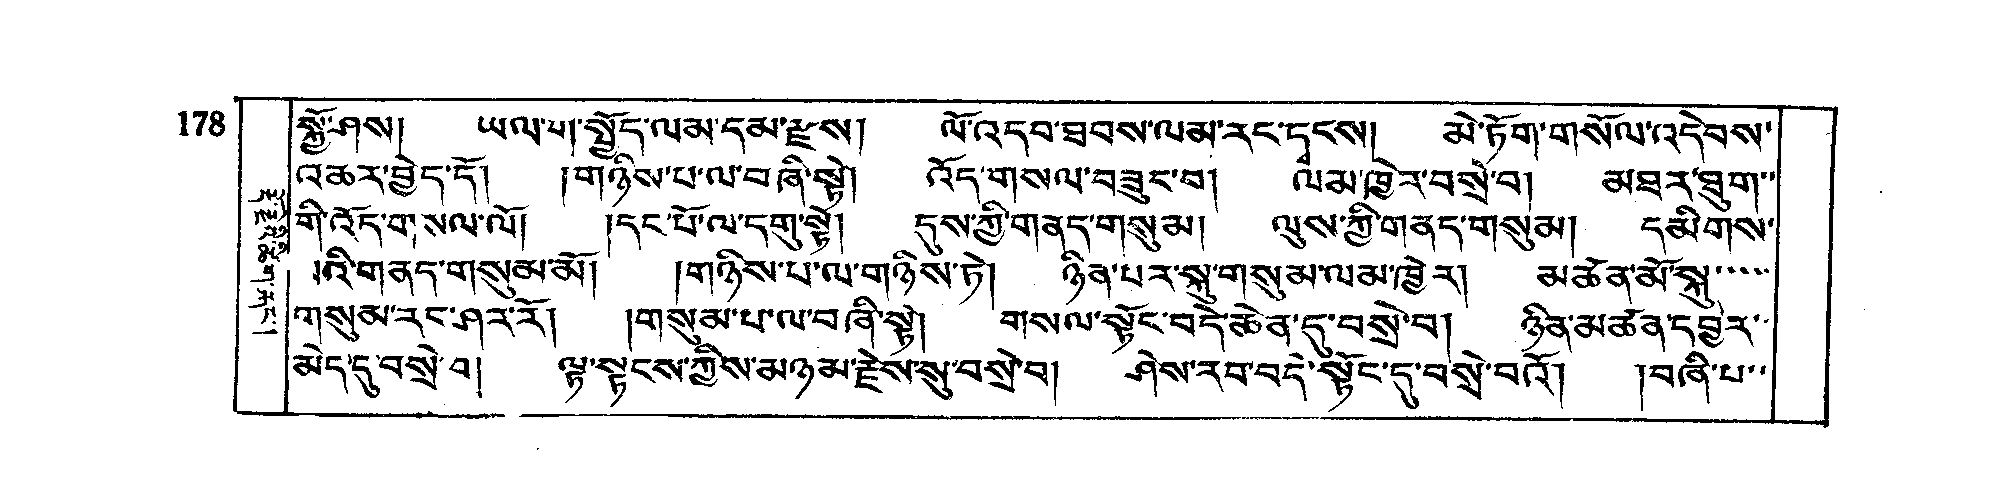 178
སྐྱོ་ཤས། ཡལ་པ། སྤྱོད་ལམ་དམ་རྫས། ལོ་འདབ་ཐབས་ལམ་རང་དྭངས། མེ་ཏོག་གསོལ་འདེབས་
འཆར་བྱེད་དོ། །གཉིས་པ་ལ་བཞི་སྟེ། འོད་གསལ་བཟུང་བ། ལམ་ཁྱེར་བསྲེ་བ། མཐར་ཐུག་
གི་འོད་གསལ་ལོ། །དང་པོ་ལ་དགུ་སྟེ། དུས་ཀྱི་གནད་གསུམ། ལུས་ཀྱི་གནད་གསུམ། དམིགས་
།འི་གནད་གསུམ་མོ། །གཉིས་པ་ལ་གཉིས་ཏེ། ཉིན་པར་སྐུ་གསུམ་ལམ་ཁྱེར། མཚན་མོ་སྐུ་
གསུམ་རང་ཤར་རོ། །གསུམ་པ་ལ་བཞི་སྟེ། གསལ་སྟོང་བདེ་ཆེན་དུ་བསྲེ་བ། ཉིན་མཚན་དབྱེར་
མེད་དུ་བསྲེ་བ། ལྟ་སྟངས་ཀྱིས་མཉམ་རྗེས་སུ་བསྲེ་བ། ཤེས་རབ་བདེ་སྟོང་དུ་བསྲེ་བའོ། །བཞི་པ་